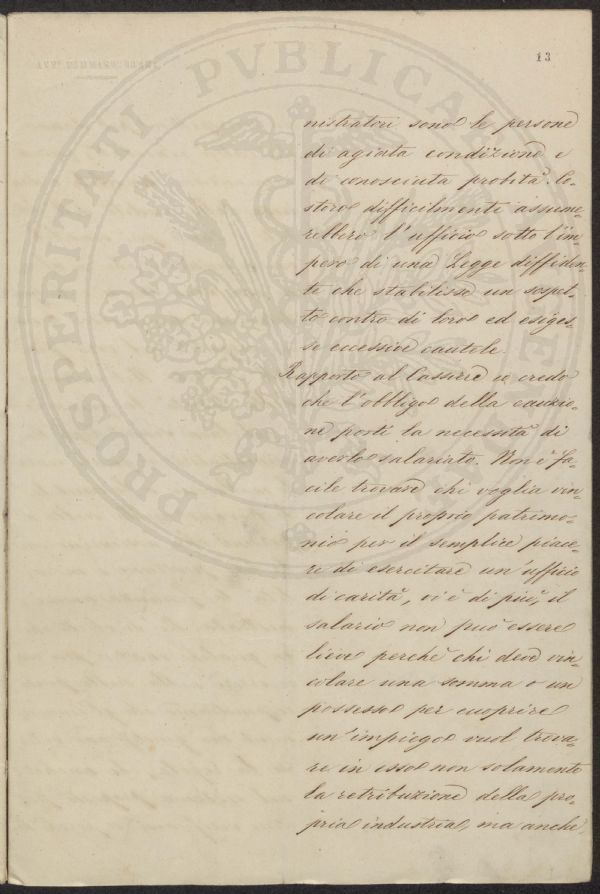 13
nistratori sono le persone
di agiata condizione e
di conosciuta probità. Co-
storo difficilmente assume-
rebbero l'ufficio sotto l'im-
pero di una Legge diffiden-
te che stabilisse un sospet-
to contro di loro ed esiges-
se eccessive cautele.
Rapporto al Cassiere io credo
che l'obbligo della cauzio-
ne porti la necessità di
averlo salariato. Non è fa-
cile trovare chi voglia vin-
colare il proprio patrimo-
nio per il semplice piace-
re di esercitare un'ufficio
di carità, vi è di più, il
salario non può essere
lieve perchè chi deve vin-
colare una somma o un
possesso per cuoprire
un'impiego vuol trova-
re in esso non solamente
la retribuzione della pro-
pria industria, ma anche
PROSPERITATI PVBLICAE